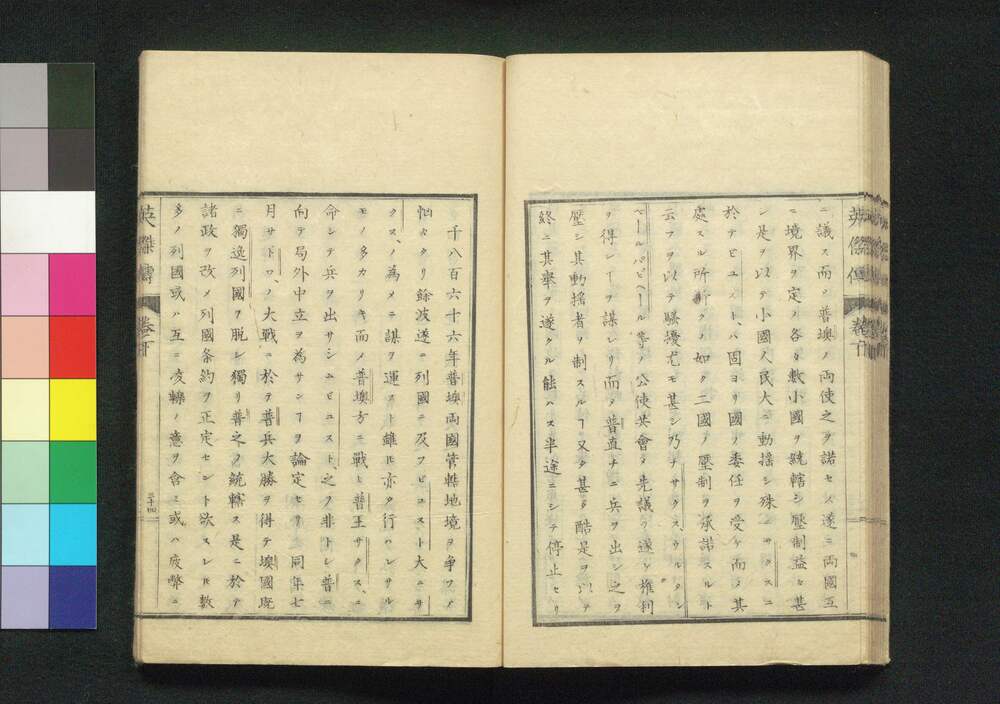 ニ議ス而ノ普墺ノ両使之ヲ諾セス遂ニ両國互
ニ境界ヲ定メ各々數小國ヲ統轄シ壓制益々甚
シ是ヲ以テ小國人民大ニ動揺シ殊ニサクスニ
於テビユスト、ハ固ヨリ國ノ委任ヲ受ケ而メ其
處スル所斯クノ如ク二國ノ壓制ヲ承諾スルト
云フヲ以テ騒擾尤モ甚シ乃ナサクス、ウルタン
ベールバビヘール等ノ公使其會ノ先議ヲ遂ケ權利
ヲ得ンヿヲ謀レリ而ノ普直チニ兵ヲ出シ之ヲ
壓シ其動揺者ヲ制スルヿ又タ甚タ酷是ヲ以テ
終ニ其擧ヲ遂クル能ハス半途ニシテ停止セリ
英傑傳 巻之下
一千八百六十六年普墺両國管轄地境ヲ争フノ
餘波遂ニ列國ニ及フビユスト大ニサ
クス、ノ為メニ謀ヲ運スト雖𪜈亦タ行ハレサル
モノ多カリキ而メ普墺方ニ戰ヒ普王サクス、ニ
命シテ兵ヲ出サシムビユスト、之ヲ非トシ普ニ
向テ局外中立ヲ為サンヿヲ論定セリ同年七
月サドワ、ノ大戰ニ於テ普兵大勝ヲ得テ墺國既
ニ獨逸列國ヲ脱シ獨リ普之ヲ統轄ス是ニ於テ
諸政ヲ改メ列國条約ヲ正定セント欲スレ𪜈數
多ノ列國或ハ互ニ凌轢ノ意ヲ含ミ或ハ疲弊ニ
英傑傳 巻之下 三十四